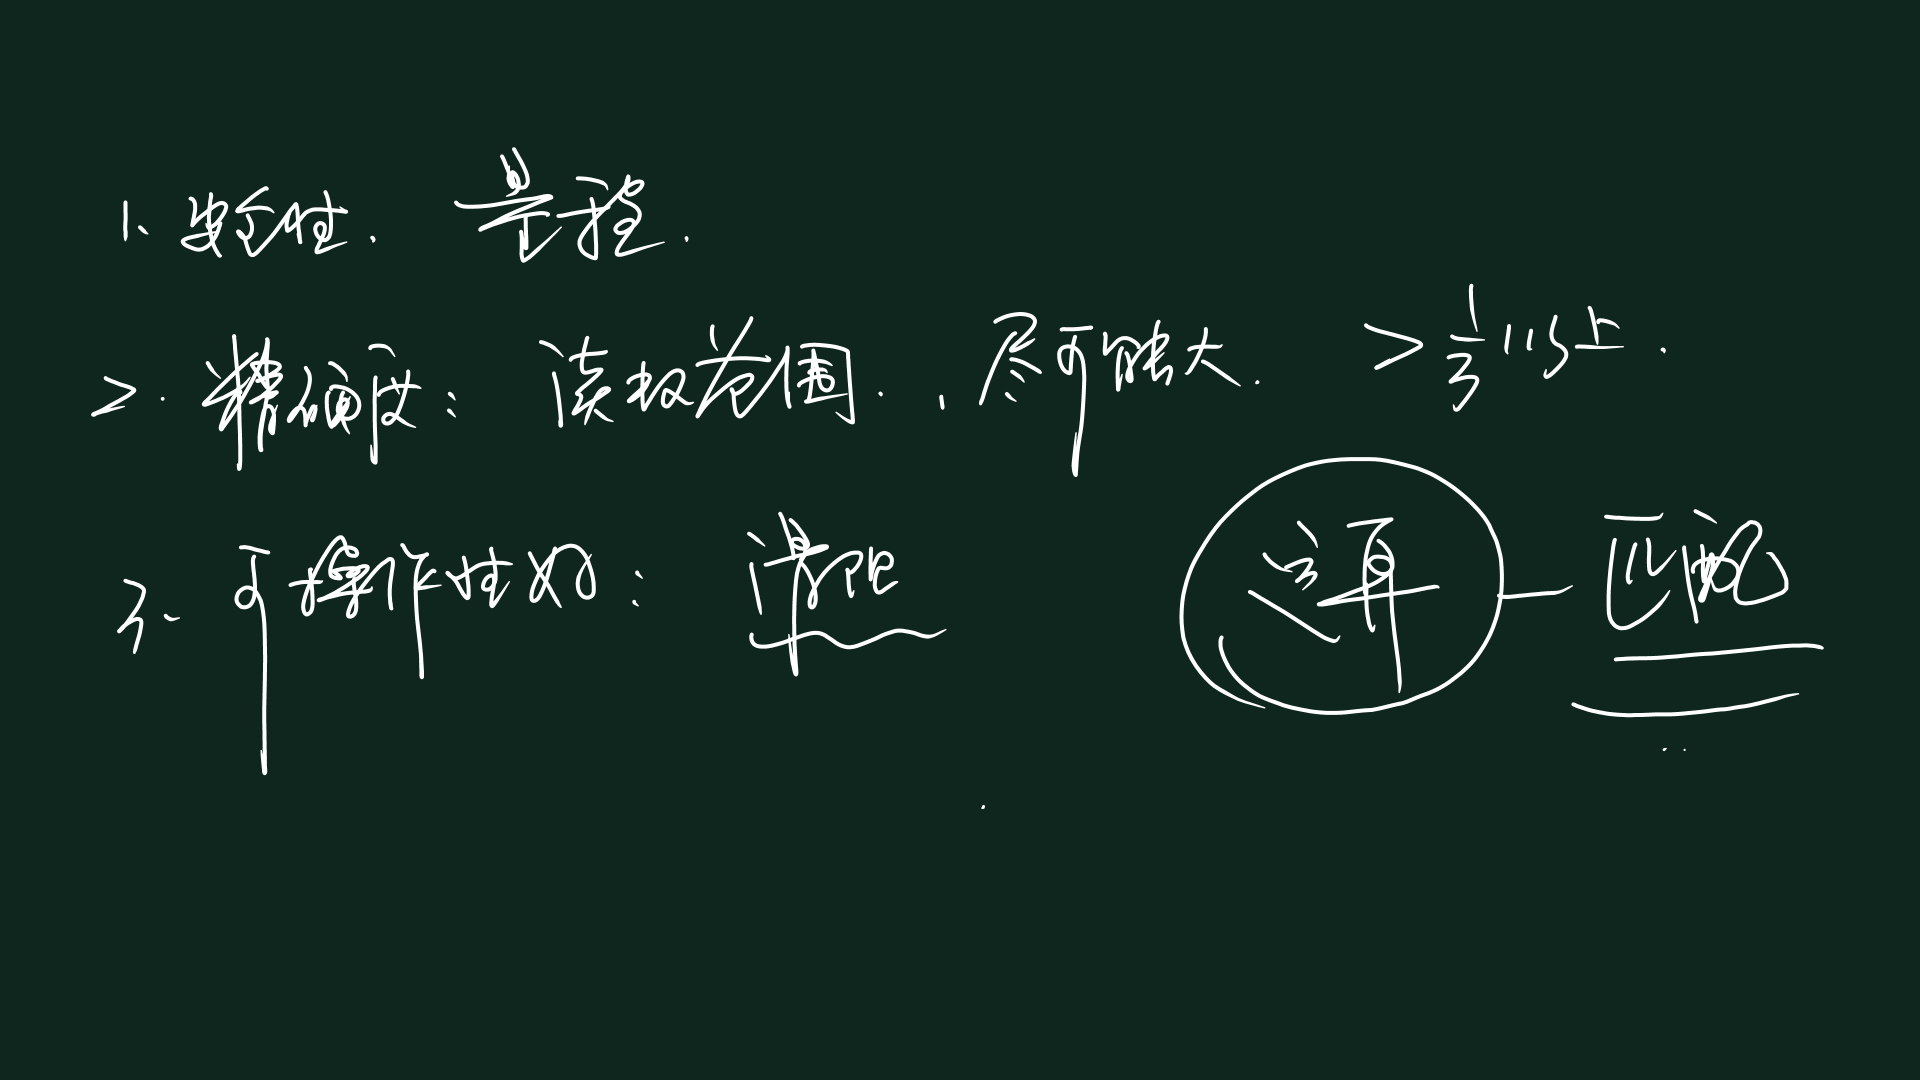 1、安全性. 量程.
2. 精确度: 读数范围. , 尽可能大. > 1/3 以上.
3. 可操作性好: 滑阻 运算 — 匹配